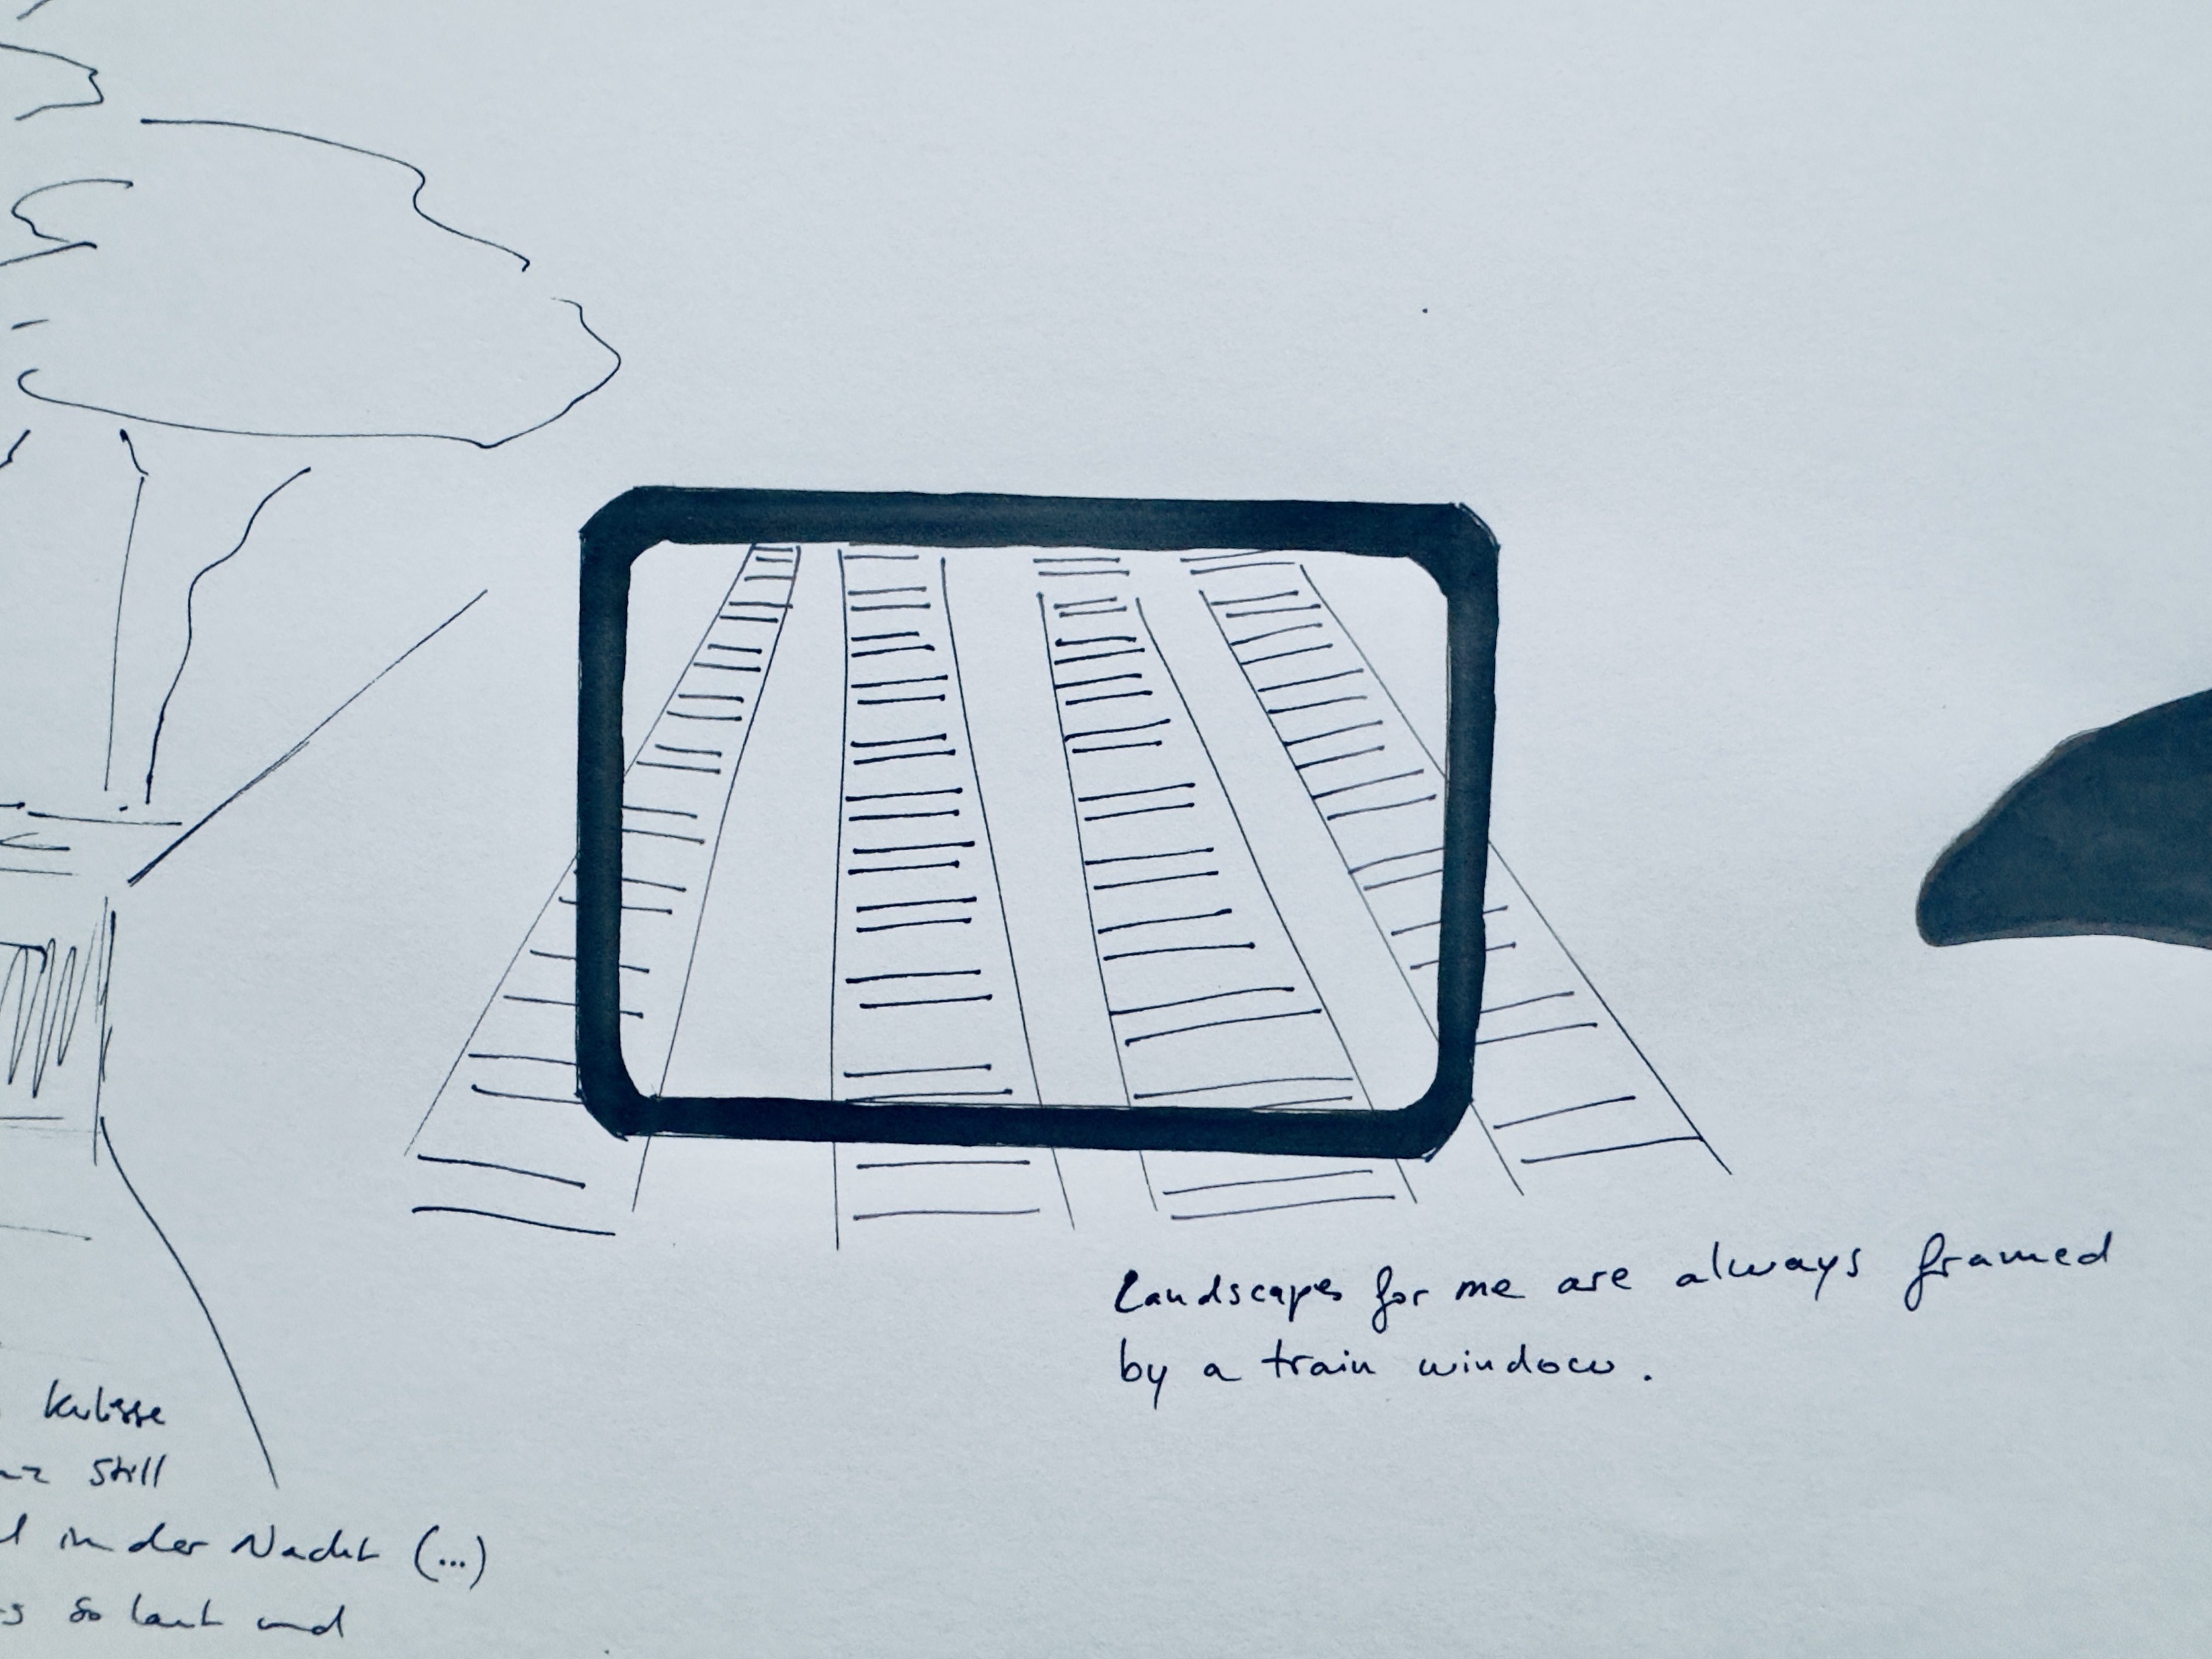 Landscapes for me are always framed
by a train window.
Kulisse
still
in der Nacht (...)
so laut und